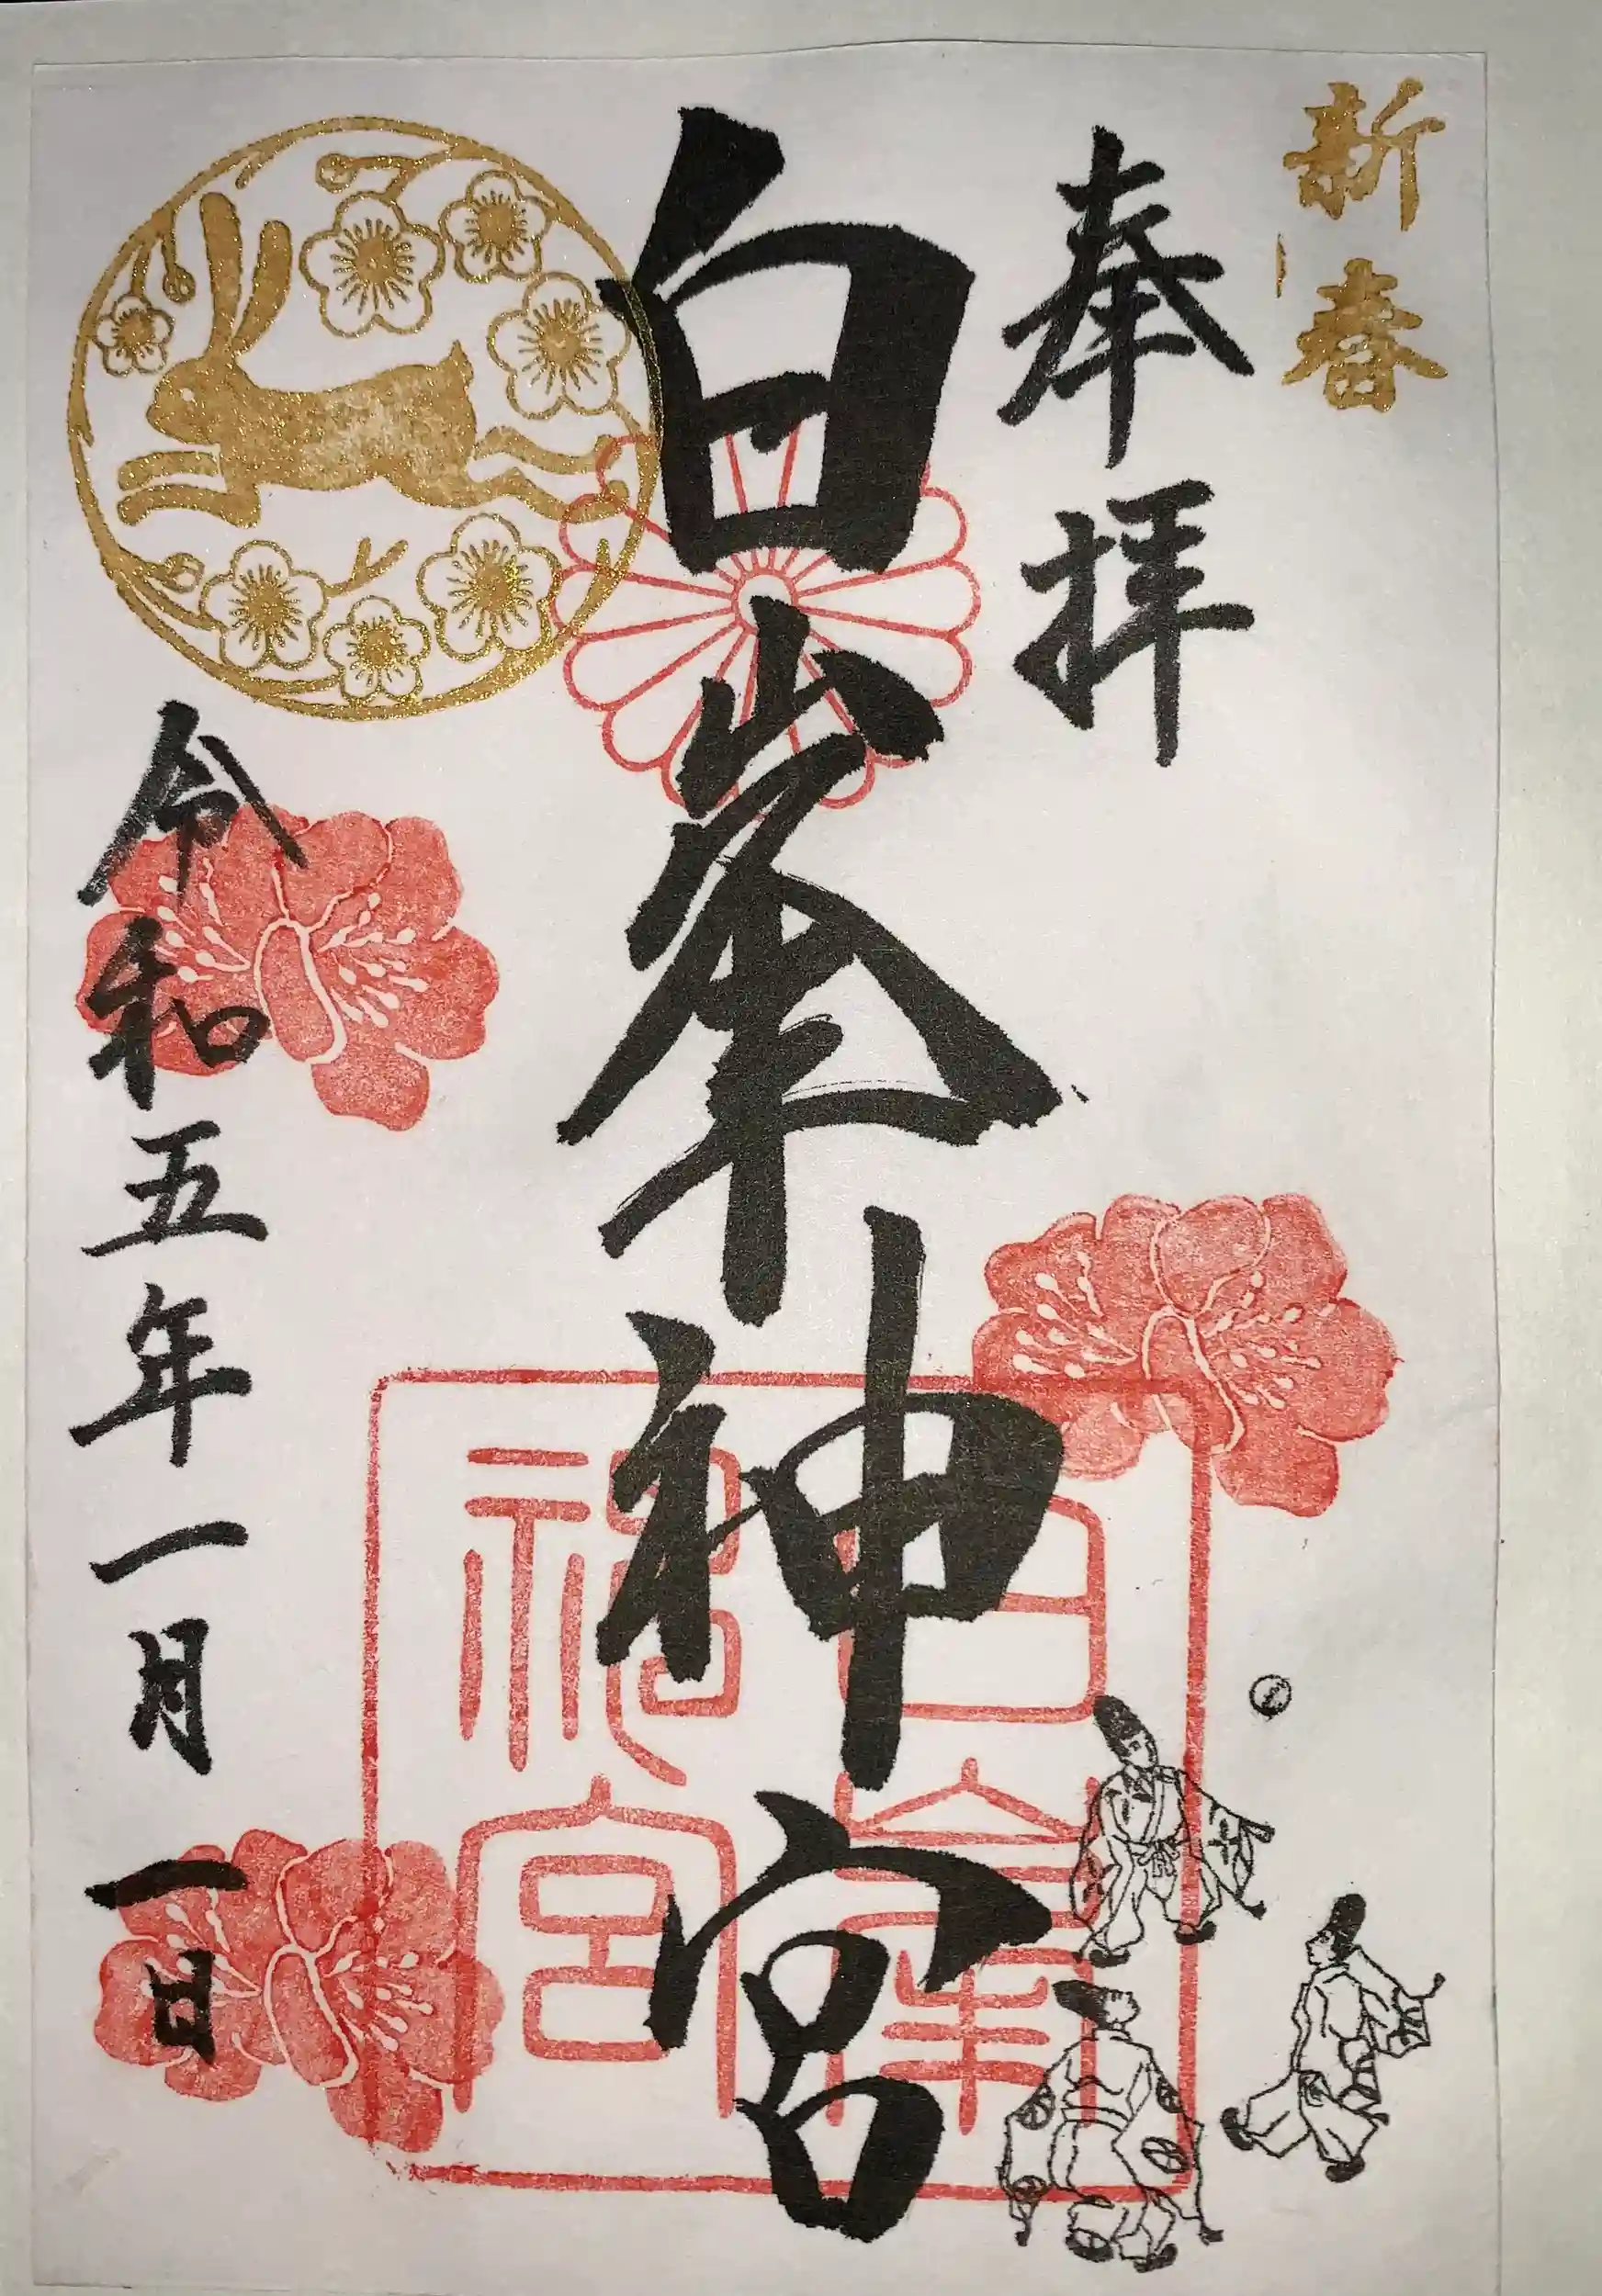 新春
奉拝
白峯神宮
白峯
神宮
令和五年一月一日